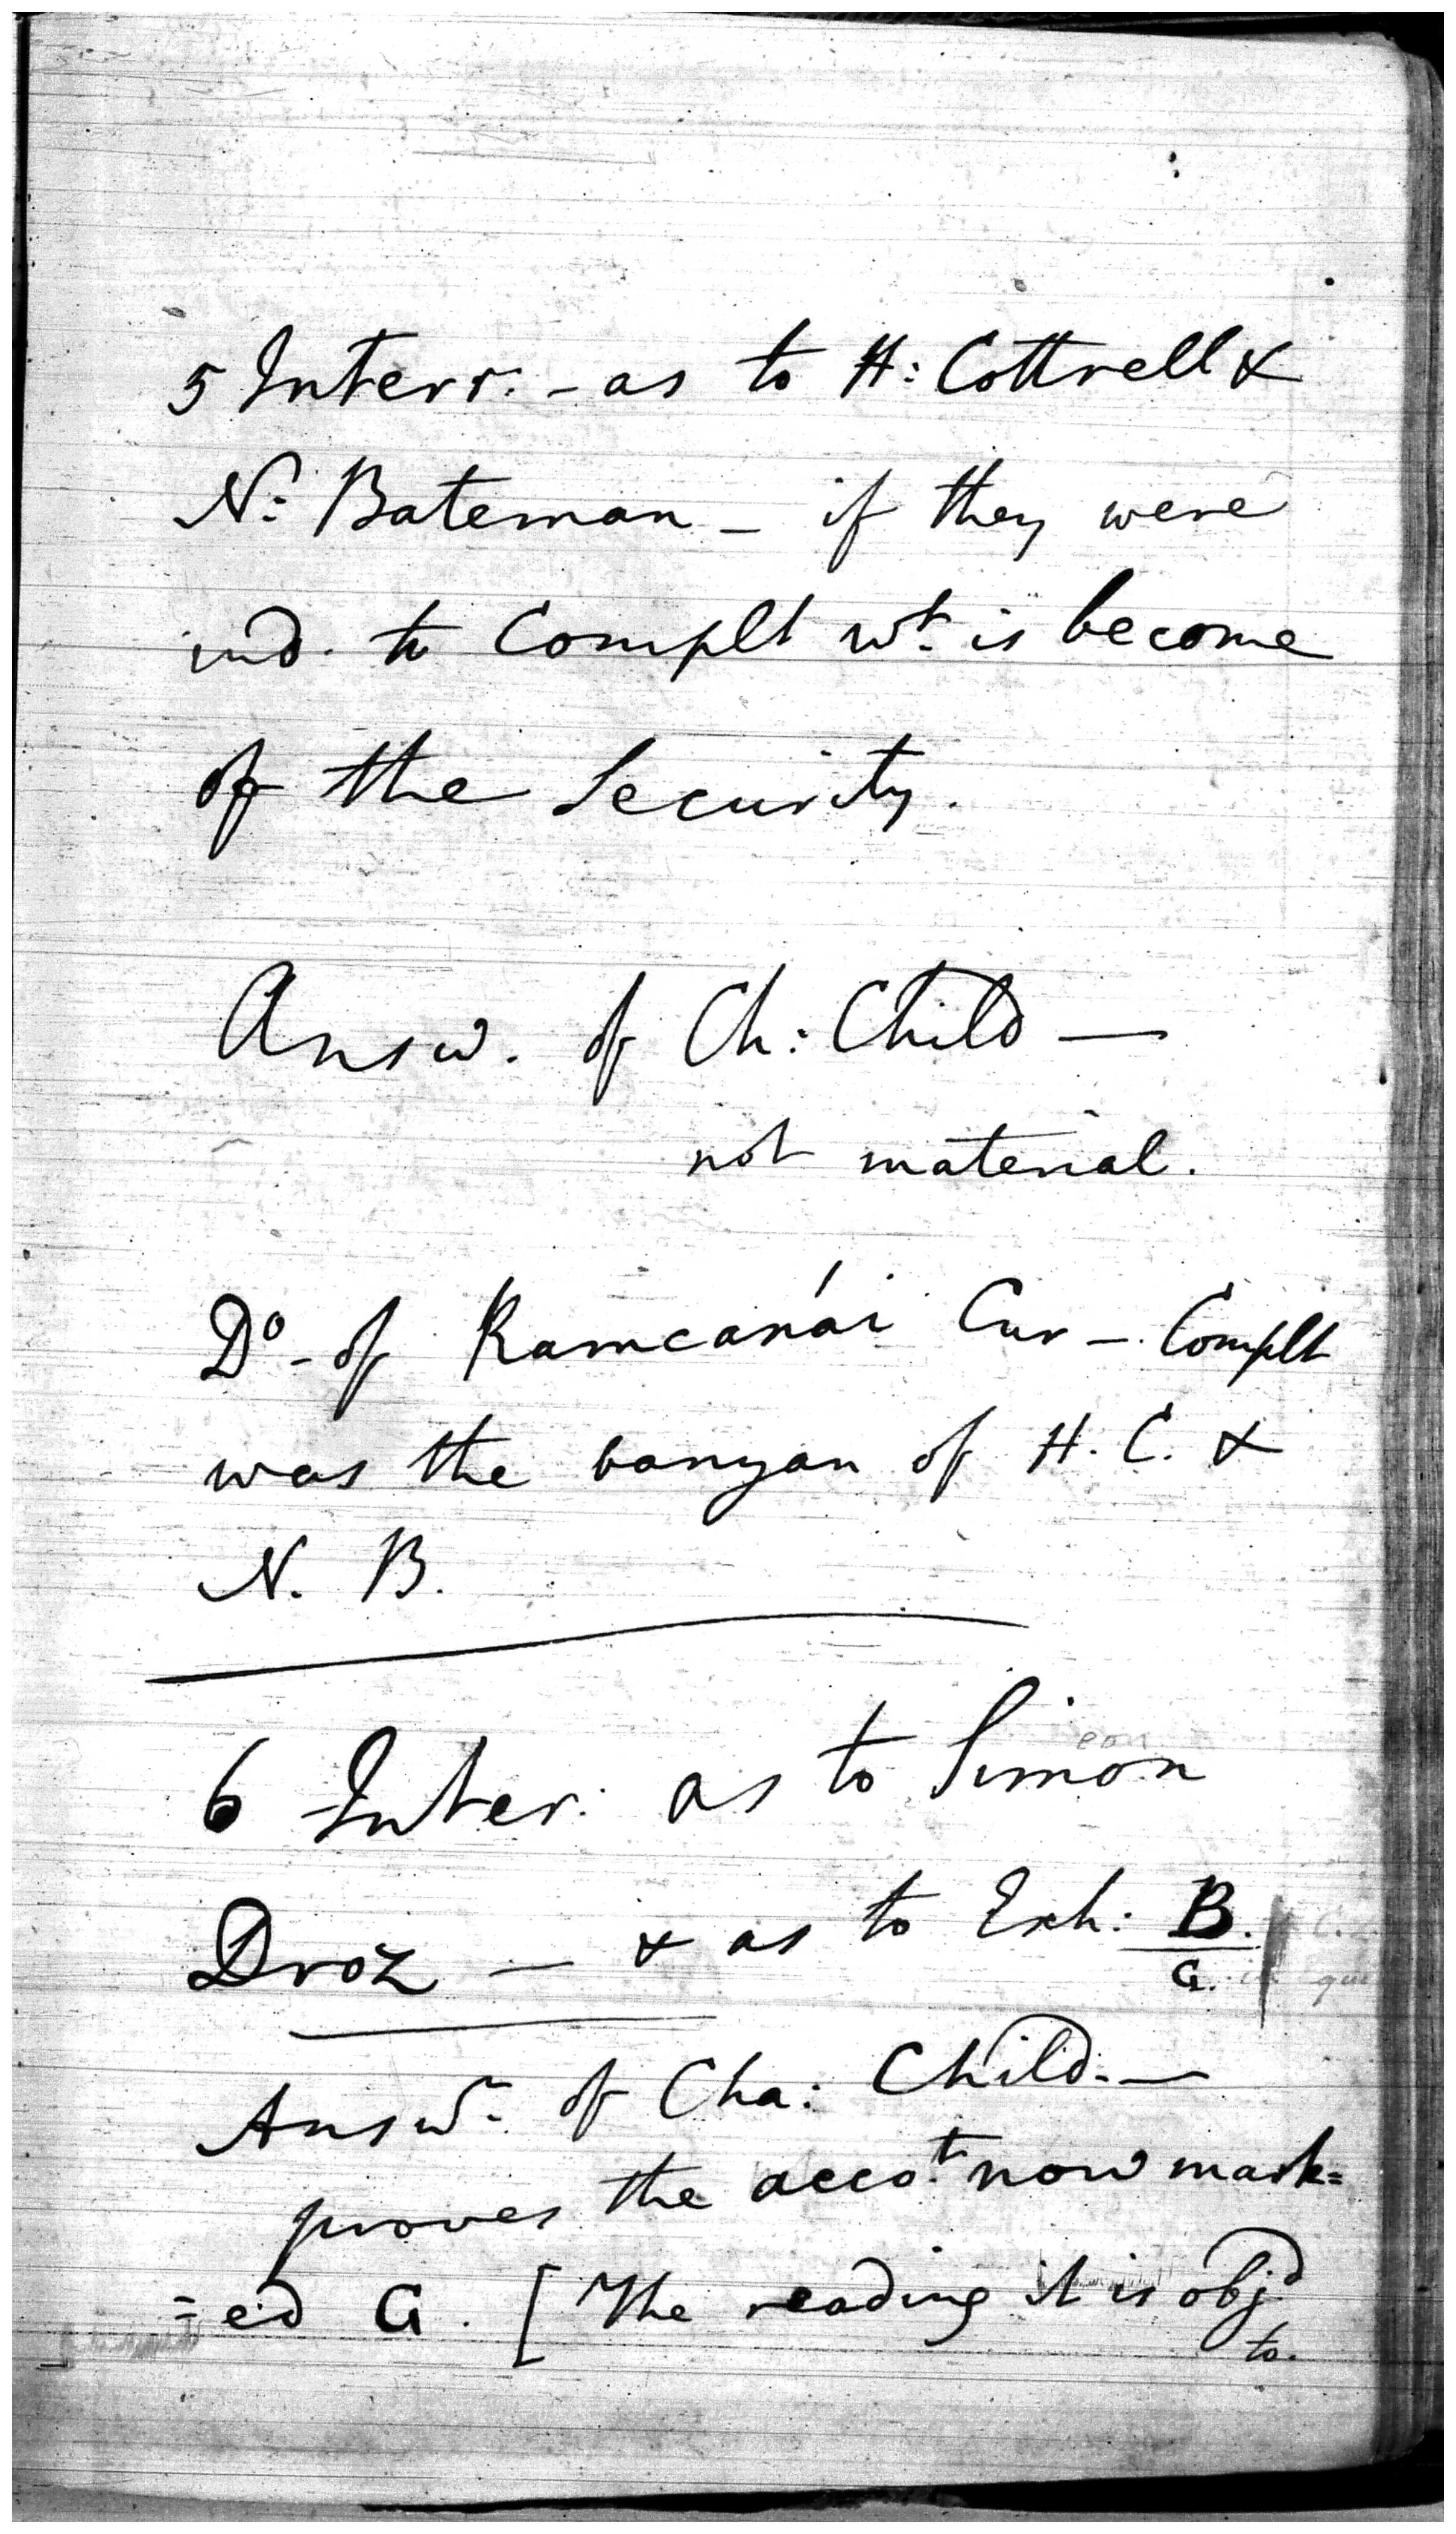 5 Interr. - as to H: Cottrell &
N: Bateman - if they were
ind. to Complt wt. is become
of the Security.
Answ. of Ch: Child -
not material.
Do - of Ramcanái Cur - Complt
was the banyan of H. C. &
N. B.
6 Inter: as to Simon
eon
Droz - & as to Exh: B.
G.
Answr. of Cha: Child. -
proves the accot. now mark=
=ed G. [The reading it is objd
to.